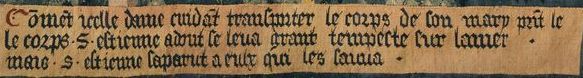 Cõmẽt icelle dame cuidãt transporter le corps de son mary prĩt le
le corps · S · estienne adont se leva grant tempeste sur lamer ·
mais · s · estienne saparut a eulx qui les sauva ·